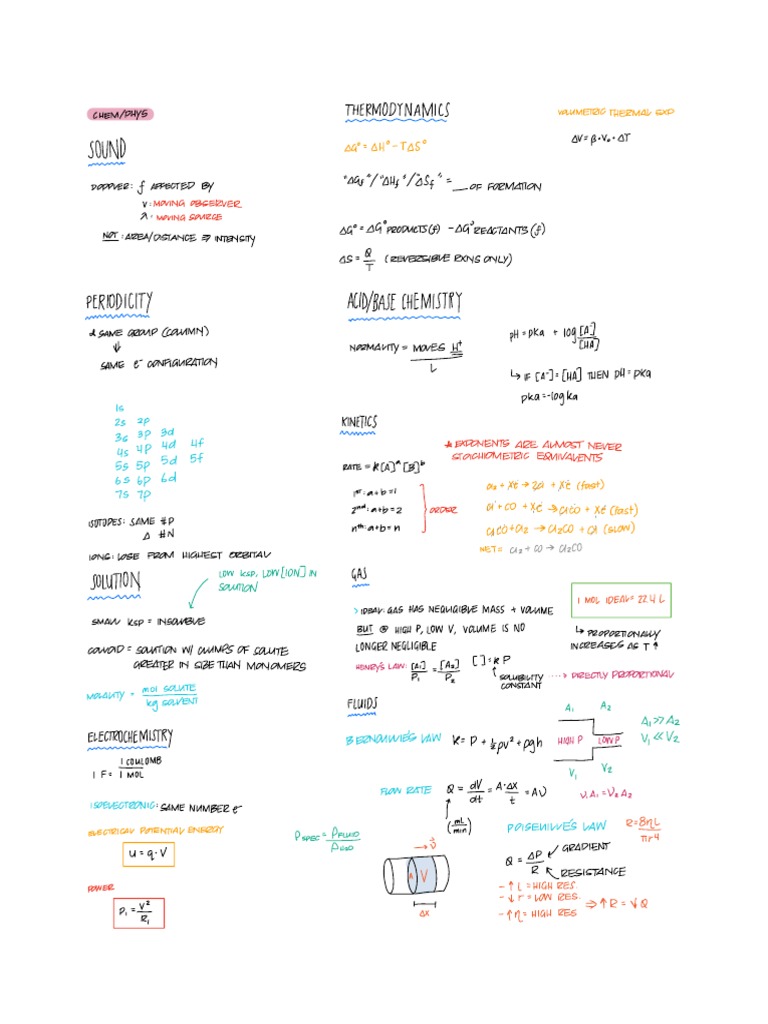 CHEM/PHYS
SOUND
DOPPLER: f AFFECTED BY
v: MOVING OBSERVER
λ: MOVING SOURCE
NOT: AREA/DISTANCE ⇒ INTENSITY
PERIODICITY
SAME GROUP (COLUMN)
↓
SAME e⁻ CONFIGURATION
1s
2s 2p
3s 3p 3d
4s 4p 4d 4f
5s 5p 5d 5f
6s 6p 6d
7s 7p
ISOTOPES: SAME #P
Δ #N
IONS: LOSE FROM HIGHEST ORBITAL
SOLUTION
LOW KSP, LOW [ION] IN
SOLUTION
SMALL KSP = INSOLUBLE
COLLOID = SOLUTION W/ CLUMPS OF SOLUTE
GREATER IN SIZE THAN MONOMERS
MOLALITY = mol SOLUTE
kg SOLVENT
ELECTROCHEMISTRY
1 F = 1 COULOMB
1 MOL
ISOELECTRONIC: SAME NUMBER e⁻
ELECTRICAL POTENTIAL ENERGY
U = q·V
POWER
P₁ = V²
R₁
THERMODYNAMICS
ΔG° = ΔH° - TΔS°
"ΔGf°"/"ΔHf°"/"ΔSf°" = __ OF FORMATION
ΔG° = ΔG° PRODUCTS(f) - ΔG° REACTANTS(f)
ΔS = Q
T
(REVERSIBLE RXNS ONLY)
VOLUMETRIC THERMAL EXP
ΔV = β·V₀·ΔT
ACID/BASE CHEMISTRY
NORMALITY = MOLES H⁺
L
pH = pKa + log [A⁻]
[HA]
↳ IF [A⁻] = [HA] THEN pH = pKa
pKa = -logKa
KINETICS
RATE = K[A]ᵃ[B]ᵇ
1ˢᵗ: a+b=1
2ⁿᵈ: a+b=2
nᵗʰ: a+b=n
ORDER
* EXPONENTS ARE ALMOST NEVER
STOICHIOMETRIC EQUIVALENTS
Cl₂ + Xe → 2Cl + Xe (fast)
Cl + CO + Xe → ClCO + Xe (fast)
ClCO + Cl₂ → Cl₂CO + Cl (slow)
NET = Cl₂ + CO → Cl₂CO
GAS
> IDEAL: GAS HAS NEGLIGIBLE MASS + VOLUME
BUT @ HIGH P, LOW V, VOLUME IS NO
LONGER NEGLIGIBLE
1 MOL IDEAL = 22.4 L
↳ PROPORTIONALLY
INCREASES AS T ↑
HENRY'S LAW: [A₁] = [A₂]
P₁ P₂
[ ] = K P
SOLUBILITY
CONSTANT
→ DIRECTLY PROPORTIONAL
FLUIDS
BERNOULLI'S LAW K = P + ½ρv² + ρgh
A₁ A₂
HIGH P LOW P
V₁ V₂
A₁ >> A₂
V₁ << V₂
V₁A₁ = V₂A₂
FLOW RATE Q = dV = A·Δx = AV
dt t
(mL
min)
P SPEC = ρ FLUID
ρ H₂O
v
A V
Δx
POISEUILLE'S LAW R = 8ηL
πr4
Q = ΔP
R
GRADIENT
RESISTANCE
- ↑ L = HIGH RES.
- ↓ r = LOW RES.
- ↑ η = HIGH RES
⇒ ↑ R = ↓ Q